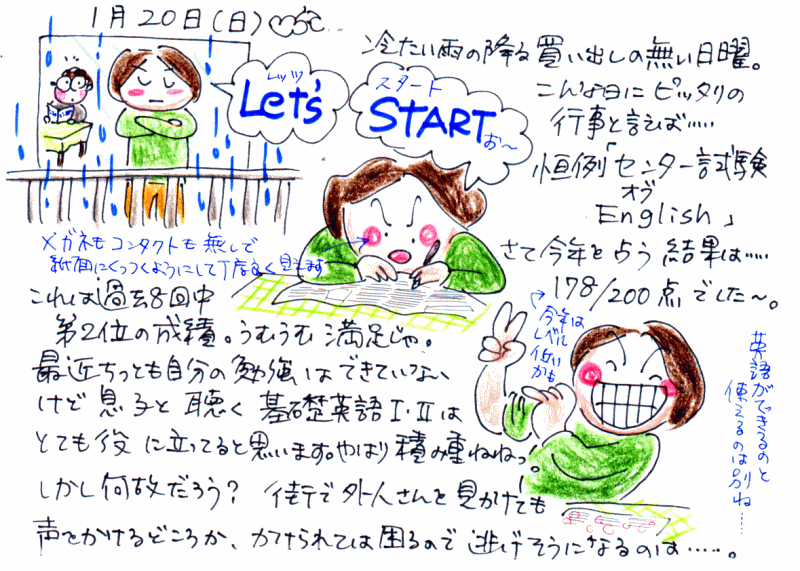 1月20日(日)
冷たい雨の降る買い出しの無い日曜。
こんな日にピッタリの
行事と言えば……
恒例「センター試験
オブ
English」
さて今年を占う結果は……
178/200点でした〜。
レッツ
Let's
スタート
START
お〜
メガネもコンタクトも無しで
紙面にくっつくようにして丁度良く見えます
これは過去8回中
第2位の成績。うむうむ満足じゃ。
最近ちっとも自分の勉強はできていない
けど息子と聴く基礎英語I・IIは
とても役に立ってると思います。やはり積み重ねねっ。
しかし何故だろう? 街で外人さんを見かけても
声をかけるどころか、かけられては困るので逃げそうになるのは……。
今年は
レベル
低い
かも
英語ができるのと
使えるのは別ね……